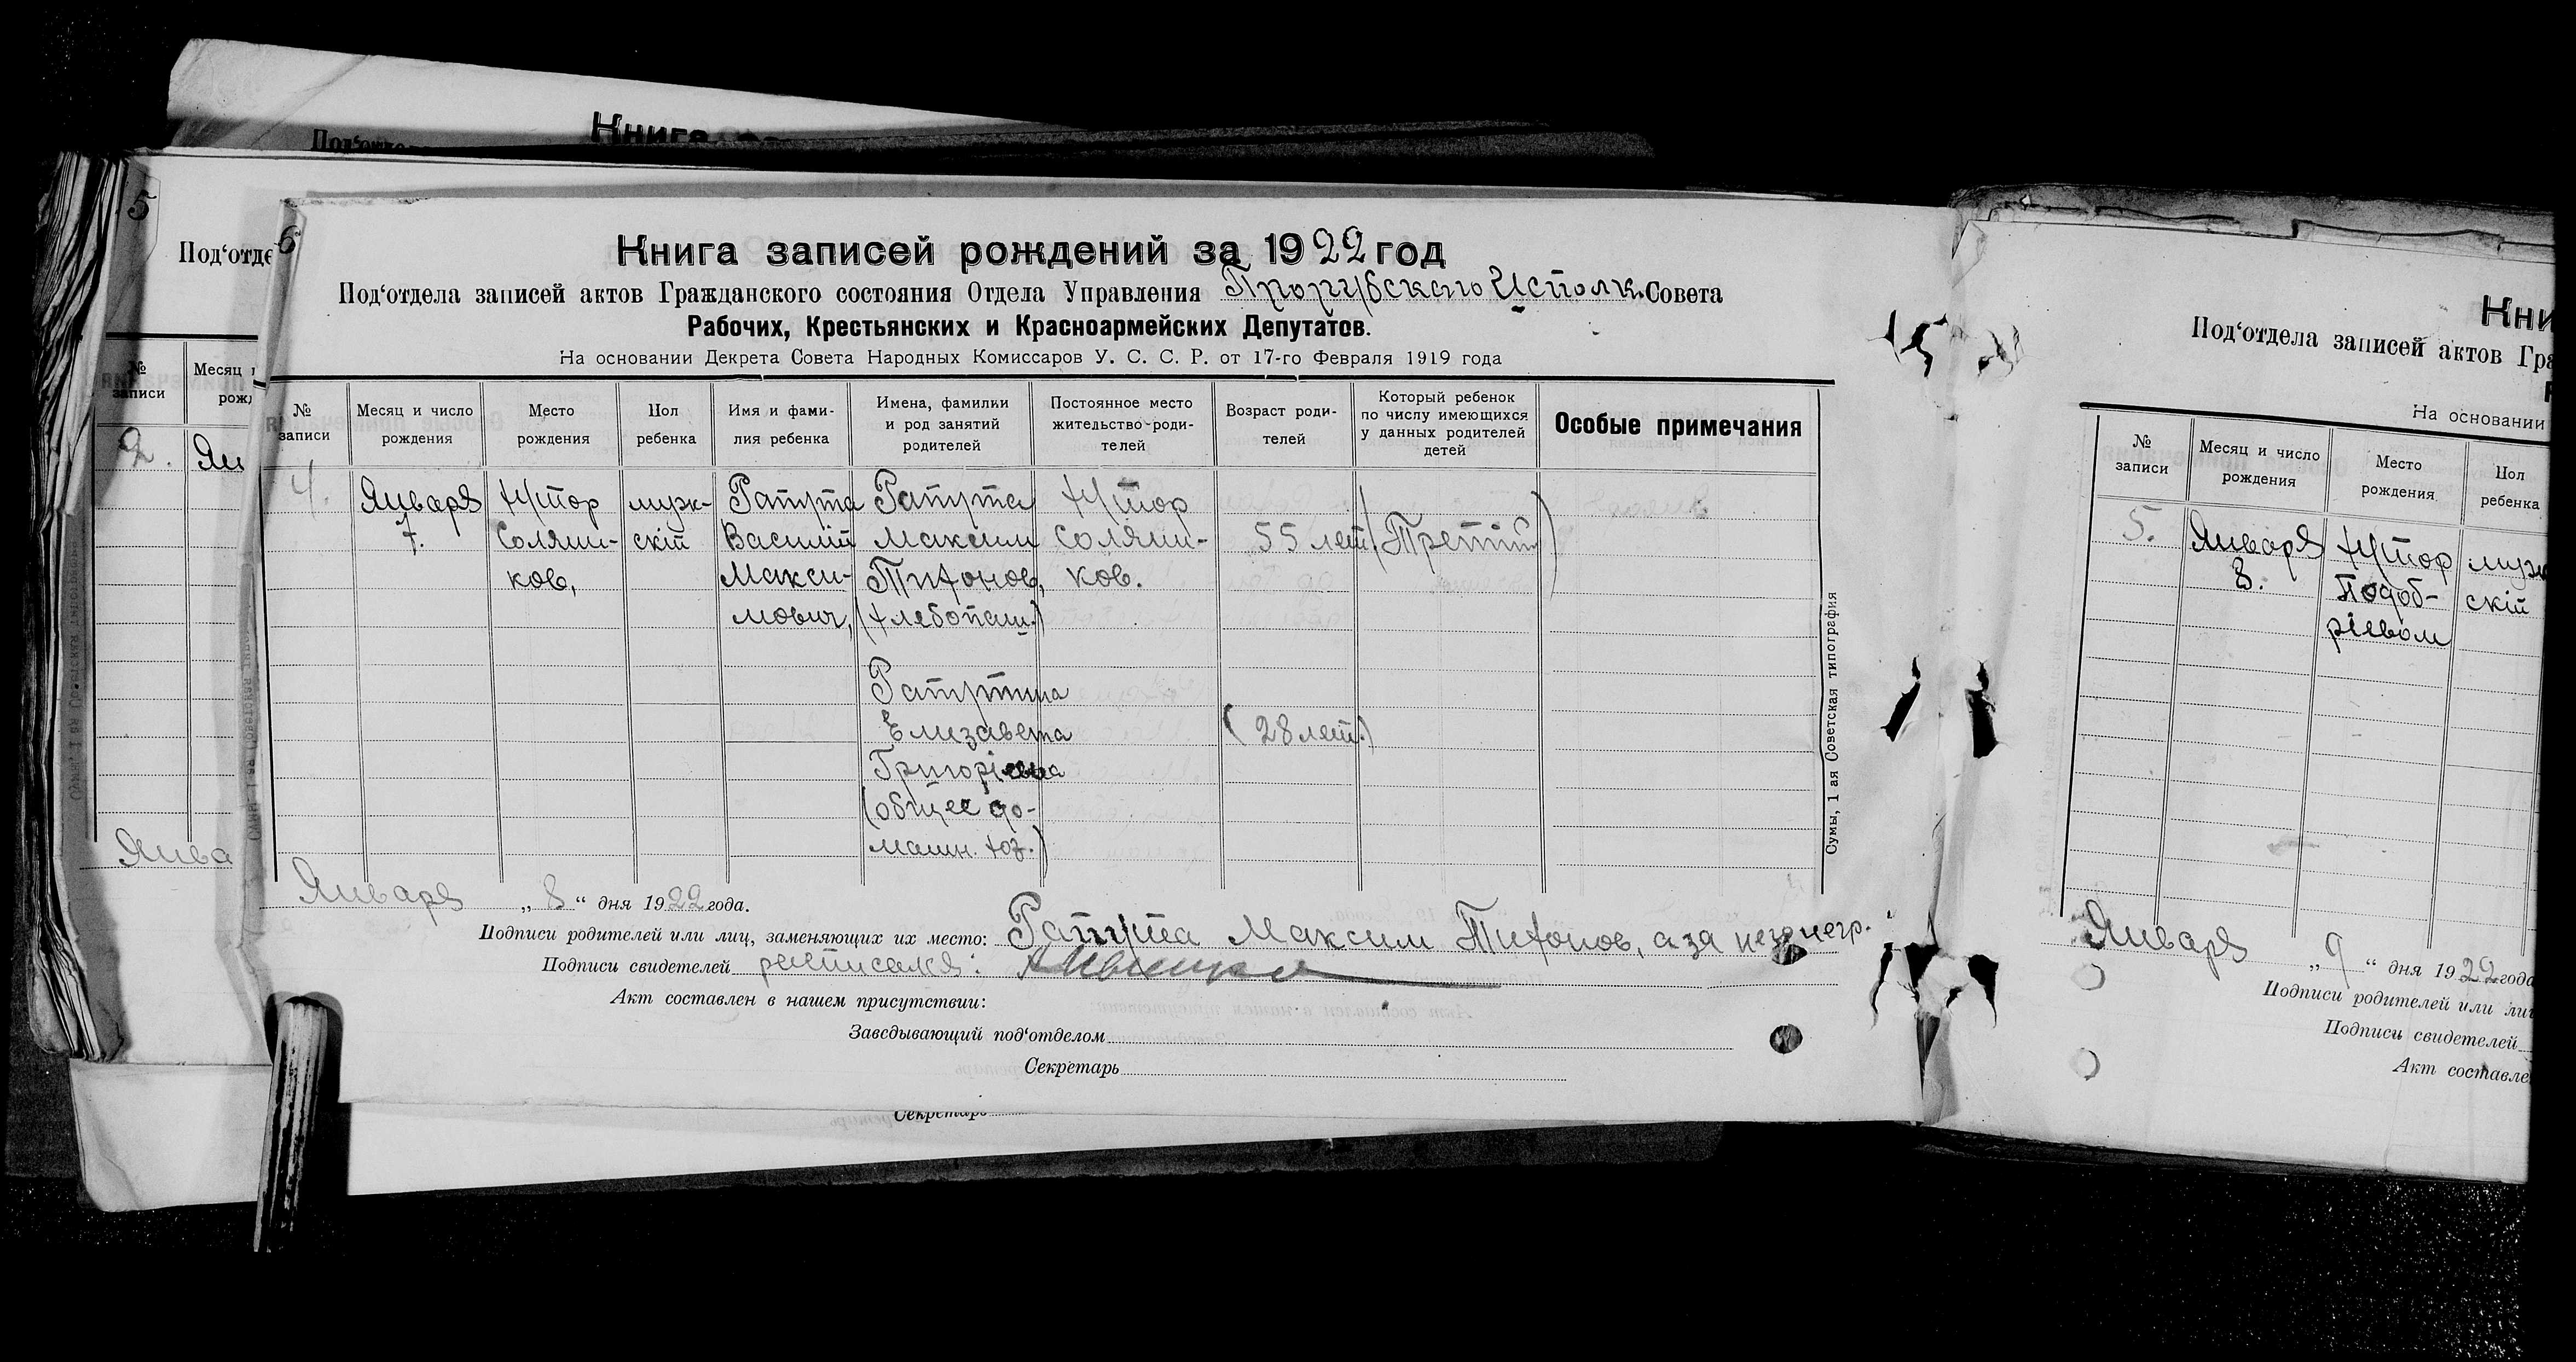 Книга
5
Под‘отде
№
записи
Месяц
рож
2.
Ян
Янва
6
Книга записей рождений за 1922 год
Под‘отдела записей актов Гражданского состояния Отдела Управления Прорубскаго Исполк. Совета
Рабочих, Крестьянских и Красноармейских Депутатов.
На основании Декрета Совета Народных Комиссаров У. С. С. Р. от 17-го Февраля 1919 года
№ записи
Месяц и число рождения
Место рождения
Пол ребенка
Имя и фами-
лия ребенка
Имена, фамилии
и род занятий
родителей
Постоянное место
жительство роди-
телей
Возраст роди-
телей
Который ребенок
по числу имеющихся
у данных родителей
детей
Особые примечания
4.
Января
7.
Хутор
Соляни-
ков,
муж-
скій
Рапута
Василій
Макси-
мович,
Рапута
Максим
Тихонов,
(хлебопаш.)
Рапутина
Елизавета
Григоріевна
(общее до-
машн. хоз.)
Хутор
Соляни-
ков.
55 лет
(28 лет.)
(Третій)
Января „8“ дня 1922 года.
Подписи родителей или лиц, заменяющих их место: Рапута Максим Тихонов, а за неграмотн.
Подписи свидетелей расписался:
Акт составлен в нашем присутствии:
Заведывающий под‘отделом
Секретарь
Секретарь
Сумы, 1 ая Советская типография
Кни
Под‘отдела записей актов Гра
На основании
№
записи
Месяц и число
рождения
Место
рождения
Пол
ребенка
5.
Января
8.
Хутор
муж
скій
Января „9“ дня 1922 года
Подписи родителей или ли
Подписи свидетелей
Акт составле